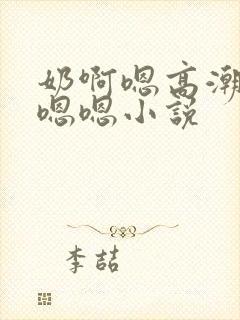 奶啊嗯高潮
嗯嗯小说
李喆